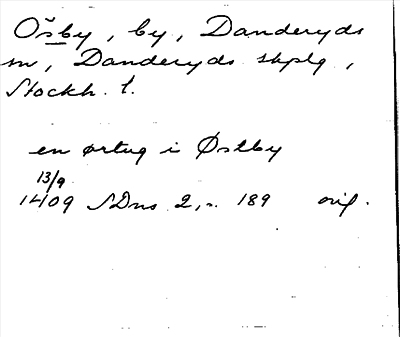 Ösby, by, Danderyds
sn, Danderyds skplg,
Stockh. l.
en ørtug i Østby
13/9
1409 SDns 2, n. 189 orig.